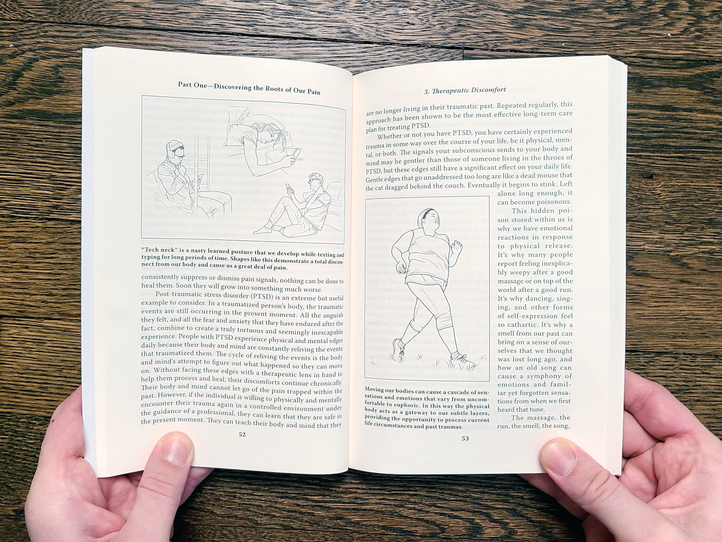 Part One—Discovering the Roots of Our Pain
"Tech neck" is a nasty learned posture that we develop while texting and
typing for long periods of time. Shapes like this demonstrate a total discon-
nect from our body and cause us a great deal of pain.
consistently suppress or dismiss pain signals, nothing can be done to
heal them. Soon they will grow into something much worse.
Post-traumatic stress disorder (PTSD) is an extreme but useful
example to consider. In a traumatized person's body, the traumatic
events are still occurring in the present moment. All the anguish
they felt, and all the fear and anxiety that they have endured after the
fact, combine to create a truly tortuous and seemingly inescapable
experience. People with PTSD experience physical and mental edges
daily because their body and mind are constantly reliving the events
that traumatized them. The cycle of reliving the events is the body
and mind's attempt to figure out what happened so they can move
on. Without facing these edges with a therapeutic lens in hand to
help them process and heal, their discomforts continue chronically.
Their body and mind cannot let go of the pain trapped within the
past. However, if the individual is willing to physically and mentally
encounter their trauma again in a controlled environment under
the guidance of a professional, they can learn that they are safe in
the present moment. They can teach their body and mind that they
52
3. Therapeutic Discomfort
are no longer living in their traumatic past. Repeated regularly, this
approach has been shown to be the most effective long-term care
plan for treating PTSD.
Whether or not you have PTSD, you have certainly experienced
trauma in some way over the course of your life, be it physical, men-
tal, or both. The signals your subconscious sends to your body and
mind may be gentler than those of someone living in the throes of
PTSD, but these edges still have a significant effect on your daily life.
Gentle edges that go unaddressed too long are like a dead mouse that
the cat dragged behind the couch. Eventually it begins to stink. Left
alone long enough, it
can become poisonous.
This hidden poi-
son stored within us is
why we have emotional
reactions in response
to physical release.
It's why many people
report feeling inexplica-
bly weepy after a good
massage or on top of the
world after a good run.
It's why dancing, sing-
ing, and other forms
of self-expression feel
so cathartic. It's why a
smell from our past can
bring on a sense of our-
selves that we thought
was lost long ago, and
how an old song can
cause a symphony of
emotions and famil-
iar yet forgotten sensa-
tions from when we first
heard that tune.
The massage, the
run, the smell, the song,
Moving our bodies can cause a cascade of sen-
sations and emotions that vary from uncom-
fortable to euphoric. In this way the physical
body acts as a gateway to our subtle layers,
providing the opportunity to process current
life circumstances and past traumas.
53